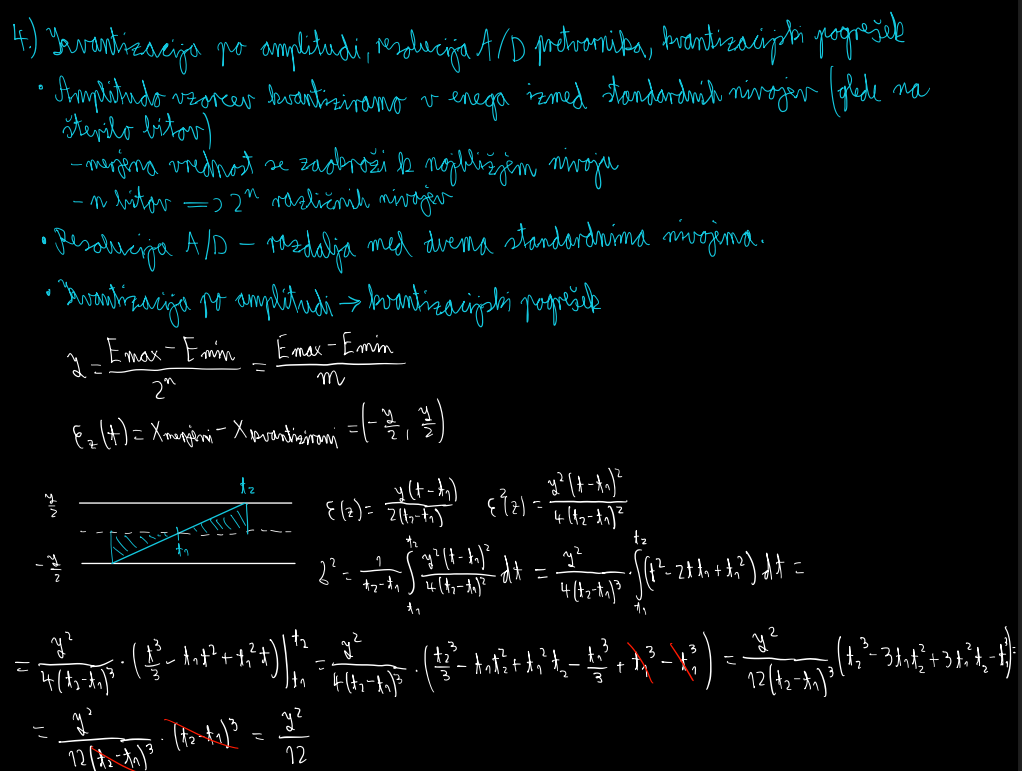 4.) Kvantizacija po amplitudi, resolucija A/D pretvornika, kvantizacijski pogrešek
• Amplitudo vzorcev kvantiziramo v enega izmed standardnih nivojev (glede na
število bitov)
- merjena vrednost se zaokroži k najbližjem nivoju
- n bitov => 2^n različnih nivojev
• Resolucija A/D – razdalja med dvema standardnima nivojema.
• Kvantizacija po amplitudi → kvantizacijski pogrešek
y = (Emax - Emin)/2^n = (Emax - Emin)/m
ε_z(t) = X merjeni - X kvantizirani = (-y/2, y/2)
y/2 t_2
t_1
-y/2
ε(z) = y(t-t_1)/2(t_2-t_1) ε²(z) = y²(t-t_1)²/4(t_2-t_1)²
2² = 1/(t_2-t_1) ∫_{t_1}^{t_2} y²(t-t_1)²/4(t_2-t_1)² dt = y²/4(t_2-t_1)³ · ∫_{t_1}^{t_2} (t²-2tt_1+t_1²) dt =
= y²/4(t_2-t_1)³ · (t³/3 - t_1t² + t_1²t)|_{t_1}^{t_2} = y²/4(t_2-t_1)³ · (t_2³/3 - t_1t_2² + t_1²t_2 - t_1³/3 + t_1³ - t_1³) = y²/12(t_2-t_1)³ (t_2³ - 3t_1t_2² + 3t_1²t_2 - t_1³) =
= y²/12(t_2-t_1)³ · (t_2-t_1)³ = y²/12